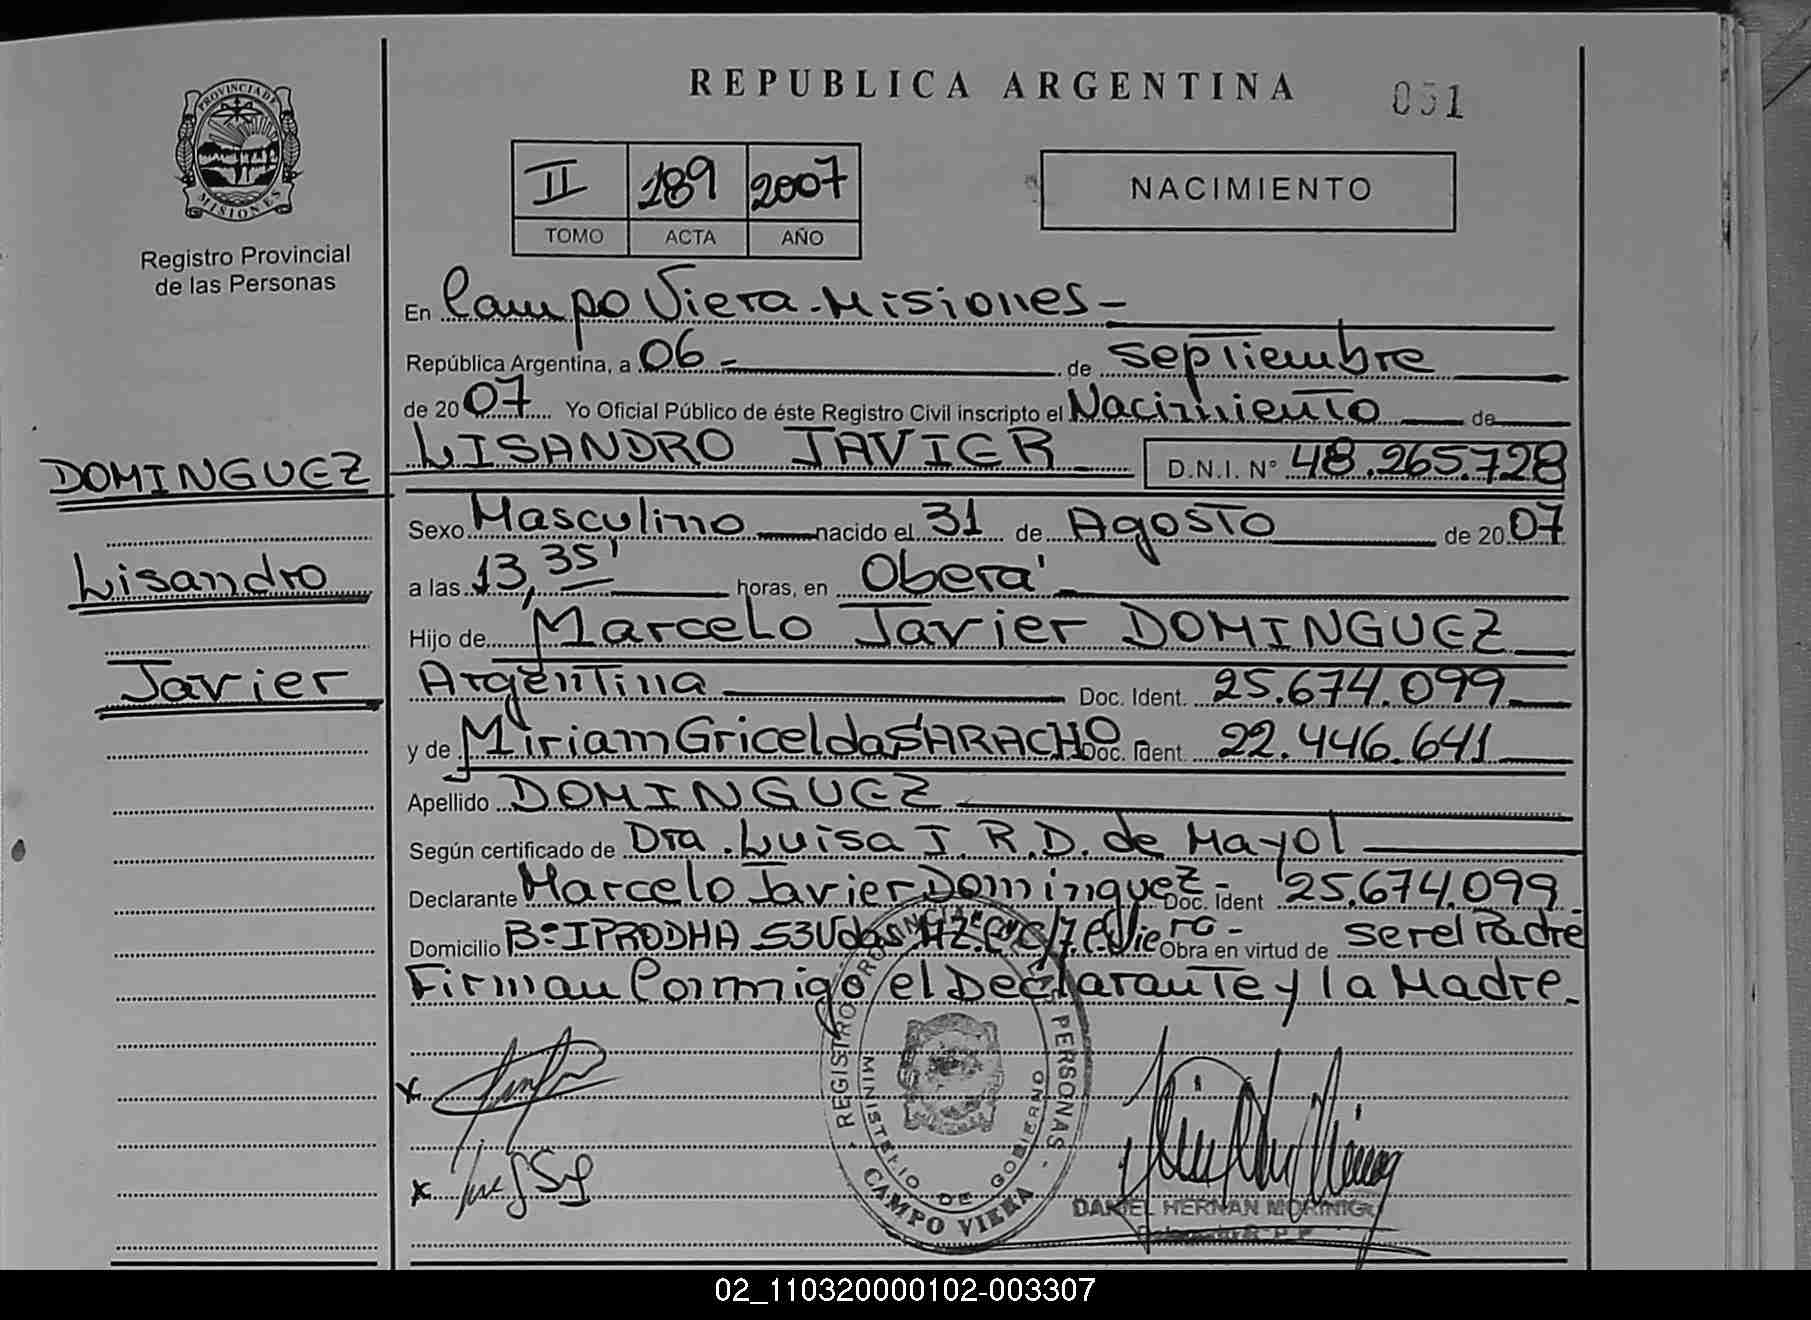 REPUBLICA ARGENTINA
051
PROVINCIA DE MISIONES
Registro Provincial
de las Personas
II 189 2007
TOMO ACTA AÑO
NACIMIENTO
En Campo Viera-Misiones-
República Argentina, a 06- de septiembre
de 2007 Yo Oficial Público de éste Registro Civil inscripto el Nacimiento de
LISANDRO JAVIER D.N.I. N° 48.265.728
DOMINGUEZ
Lisandro
Javier
Sexo Masculino nacido el 31 de Agosto de 2007
a las 13,35' horas, en Oberá
Hijo de Marcelo Javier DOMINGUEZ
Argentina Doc. Ident. 25.674.099
y de Miriam Griselda SARACHO- Doc. Ident. 22.446.641
Apellido DOMINGUEZ
Según certificado de Dra. Luisa J. R. D. de Mayol
Declarante Marcelo Javier Dominguez- Doc. Ident 25.674.099
Domicilio B° IPRODHA 53 Vdas Obra en virtud de ser el Padre
Firman Conmigo el Declarante y la Madre.
REGISTRO PROVINCIAL DE LAS PERSONAS
MINISTERIO DE GOBIERNO
CAMPO VIERA
DANIEL HERNAN MORINIGO
02_110320000102-003307